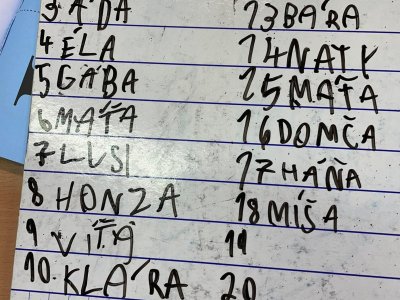 3 ÁĎA
4 ÉLA
5 GÁBA
6 MÁŤA
7 LUSI
8 HONZA
9 VÍŤA
10. KLÁRA
13 BÁRA
14 NATY
15 MÁŤA
16 DOMČA
17 HÁŇA
18 MÍŠA
19
20